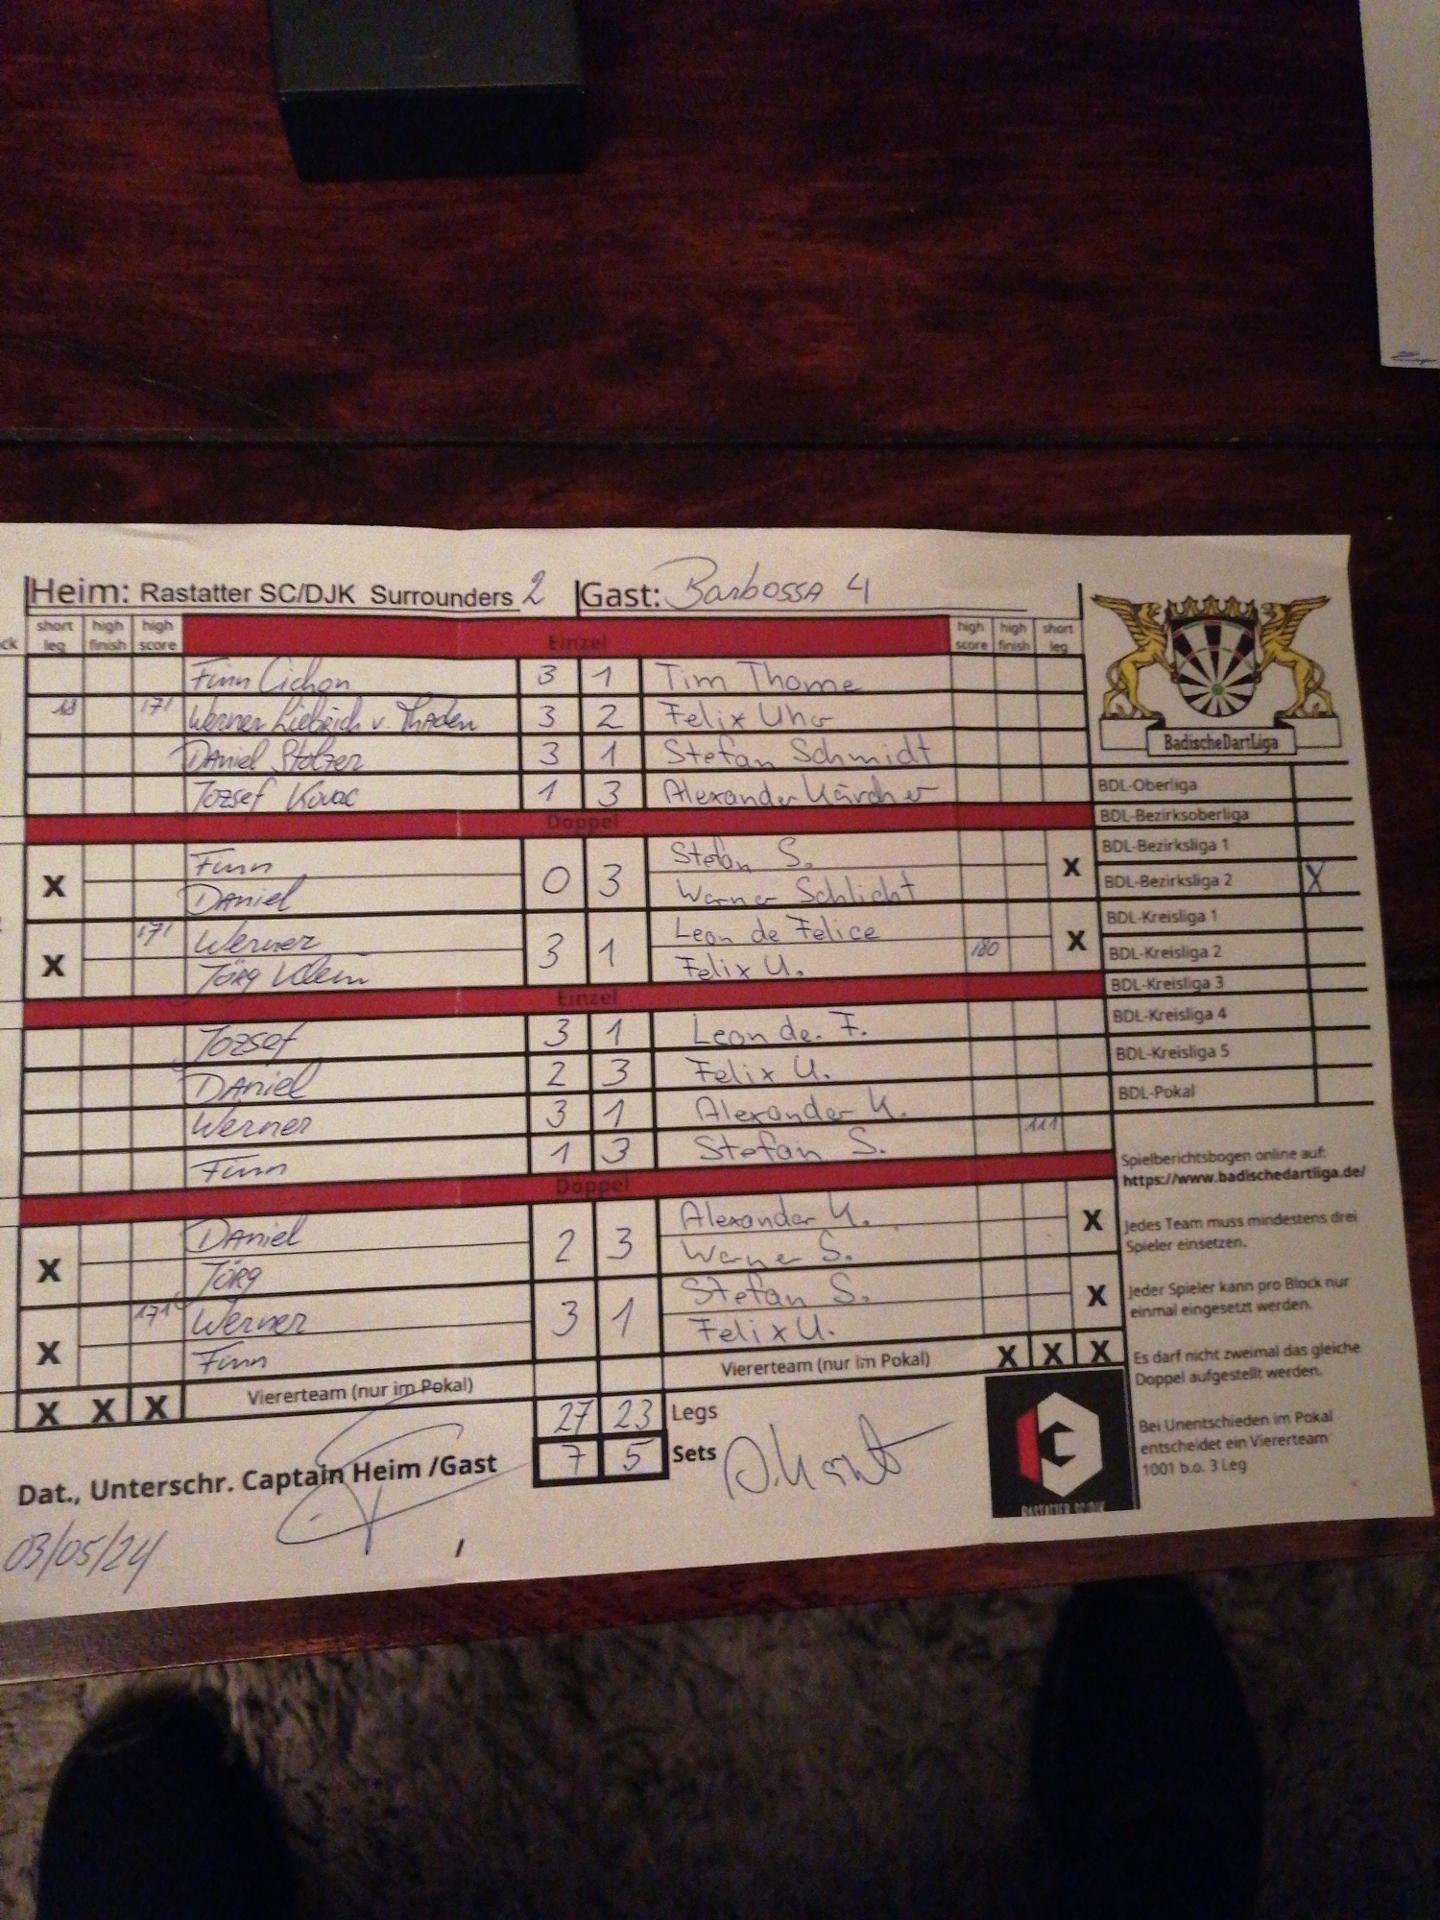 Heim: Rastatter SC/DJK Surrounders 2 Gast: Barbossa 4
ck short leg high finish high score Einzel high score high finish short leg
Finn Cichon 3 1 Tim Thome
18 171 Werner Liebrich v. Thaden 3 2 Felix Uhr
Daniel Stolzer 3 1 Stefan Schmidt
Jozsef Kovac 1 3 Alexander Kärcher
Doppel
X Finn 0 3 Stefan S. X
Daniel Werner Schlicht
X 171 Werner 3 1 Leon de Felice X
Jörg Klein Felix U. 180
Einzel
Jozsef 3 1 Leon de. F.
Daniel 2 3 Felix U.
Werner 3 1 Alexander K.
Finn 1 3 Stefan S. 111
Doppel
X Daniel 2 3 Alexander K. X
Jörg Werner S.
X 171 Werner 3 1 Stefan S. X
Finn Felix U.
X X X Viererteam (nur im Pokal) Viererteam (nur im Pokal) X X X
27 23 Legs
7 5 Sets
Dat., Unterschr. Captain Heim /Gast
03/05/24
BadischeDartLiga
BDL-Oberliga
BDL-Bezirksoberliga
BDL-Bezirksliga 1
BDL-Bezirksliga 2 X
BDL-Kreisliga 1
BDL-Kreisliga 2
BDL-Kreisliga 3
BDL-Kreisliga 4
BDL-Kreisliga 5
BDL-Pokal
Spielberichtsbogen online auf:
https://www.badischedartliga.de/
Jedes Team muss mindestens drei
Spieler einsetzen.
Jeder Spieler kann pro Block nur
einmal eingesetzt werden.
Es darf nicht zweimal das gleiche
Doppel aufgestellt werden.
Bei Unentschieden im Pokal
entscheidet ein Viererteam
1001 b.o. 3 Leg
RASTATTER SC/DJK